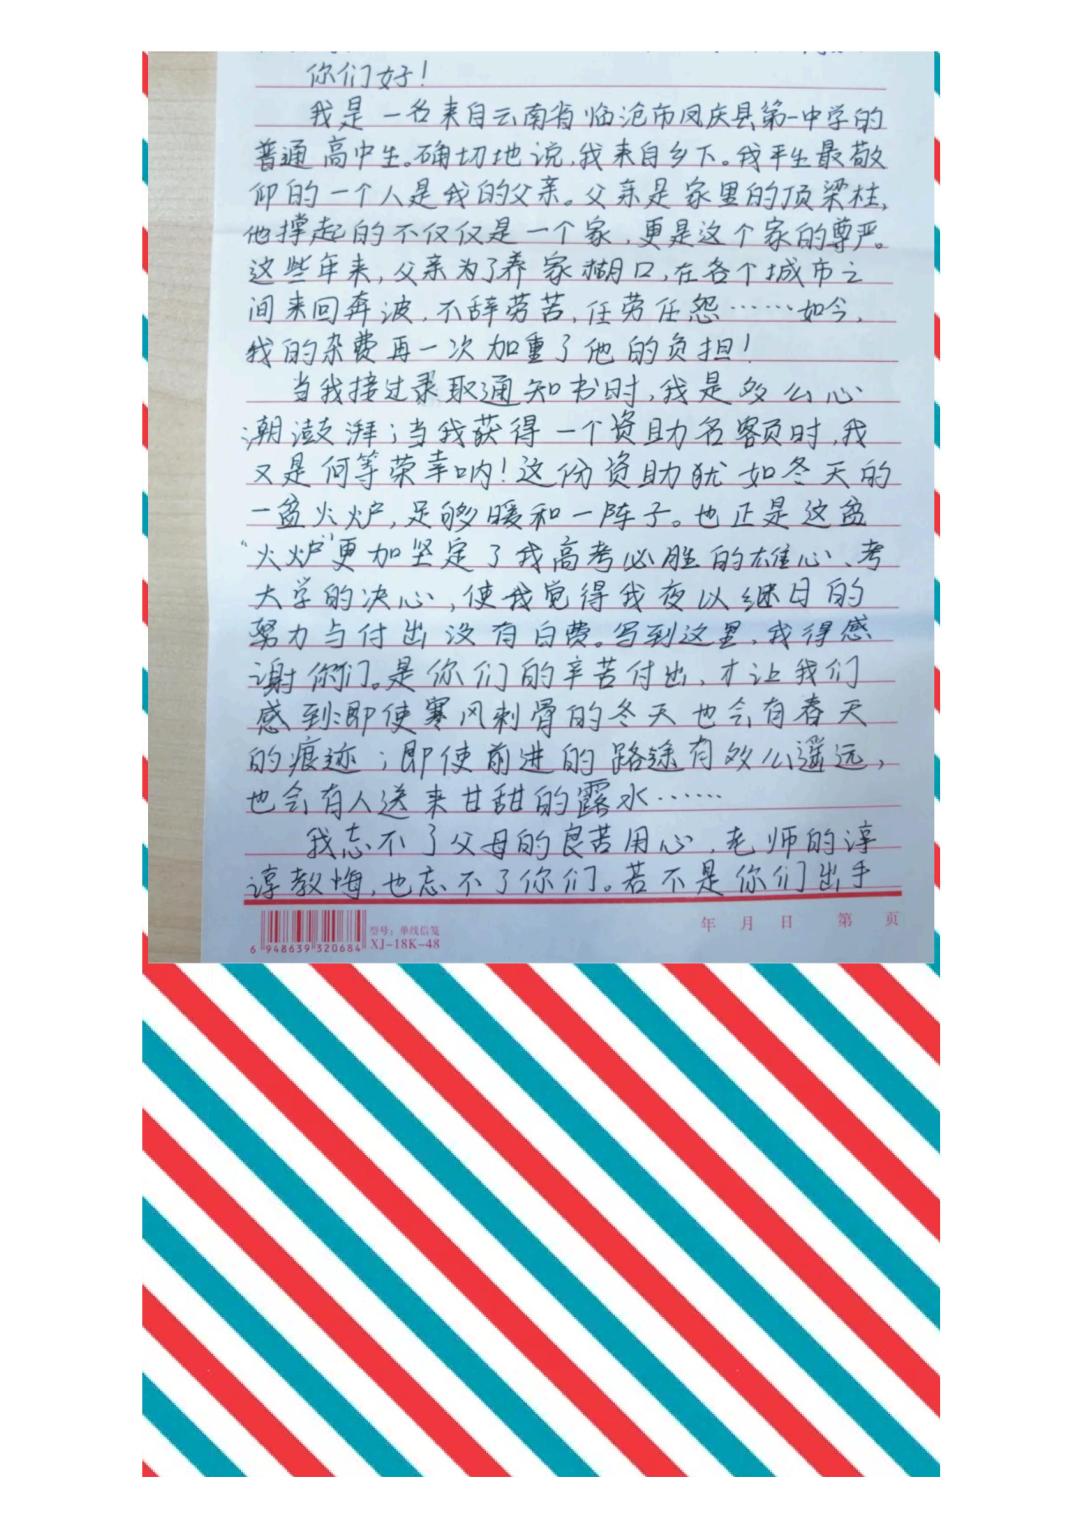 你们好！
我是一名来自云南省临沧市凤庆县第一中学的
普通高中生。确切地说，我来自乡下。我平生最敬
仰的一个人是我的父亲。父亲是家里的顶梁柱，
他撑起的不仅仅是一个家，更是这个家的尊严。
这些年来，父亲为了养家糊口，在各个城市之
间来回奔波，不辞劳苦，任劳任怨……如今，
我的杂费再一次加重了他的负担！
当我接过录取通知书时，我是多么心
潮澎湃；当我获得一个资助名额时，我
又是何等荣幸呐！这份资助犹如冬天的
一盆火炉，足够暖和一阵子。也正是这盆
“火炉”更加坚定了我高考必胜的雄心、考
大学的决心，使我觉得我夜以继日的
努力与付出没有白费。写到这里，我得感
谢你们。是你们的辛苦付出，才让我们
感到：即使寒风刺骨的冬天也会有春天
的痕迹；即使前进的路途有多么遥远，
也会有人送来甘甜的露水……
我忘不了父母的良苦用心，老师的谆
谆教悔，也忘不了你们。若不是你们出手
6 948639 320684
型号：单线信笺
XJ-18K-48
年 月 日 第 页